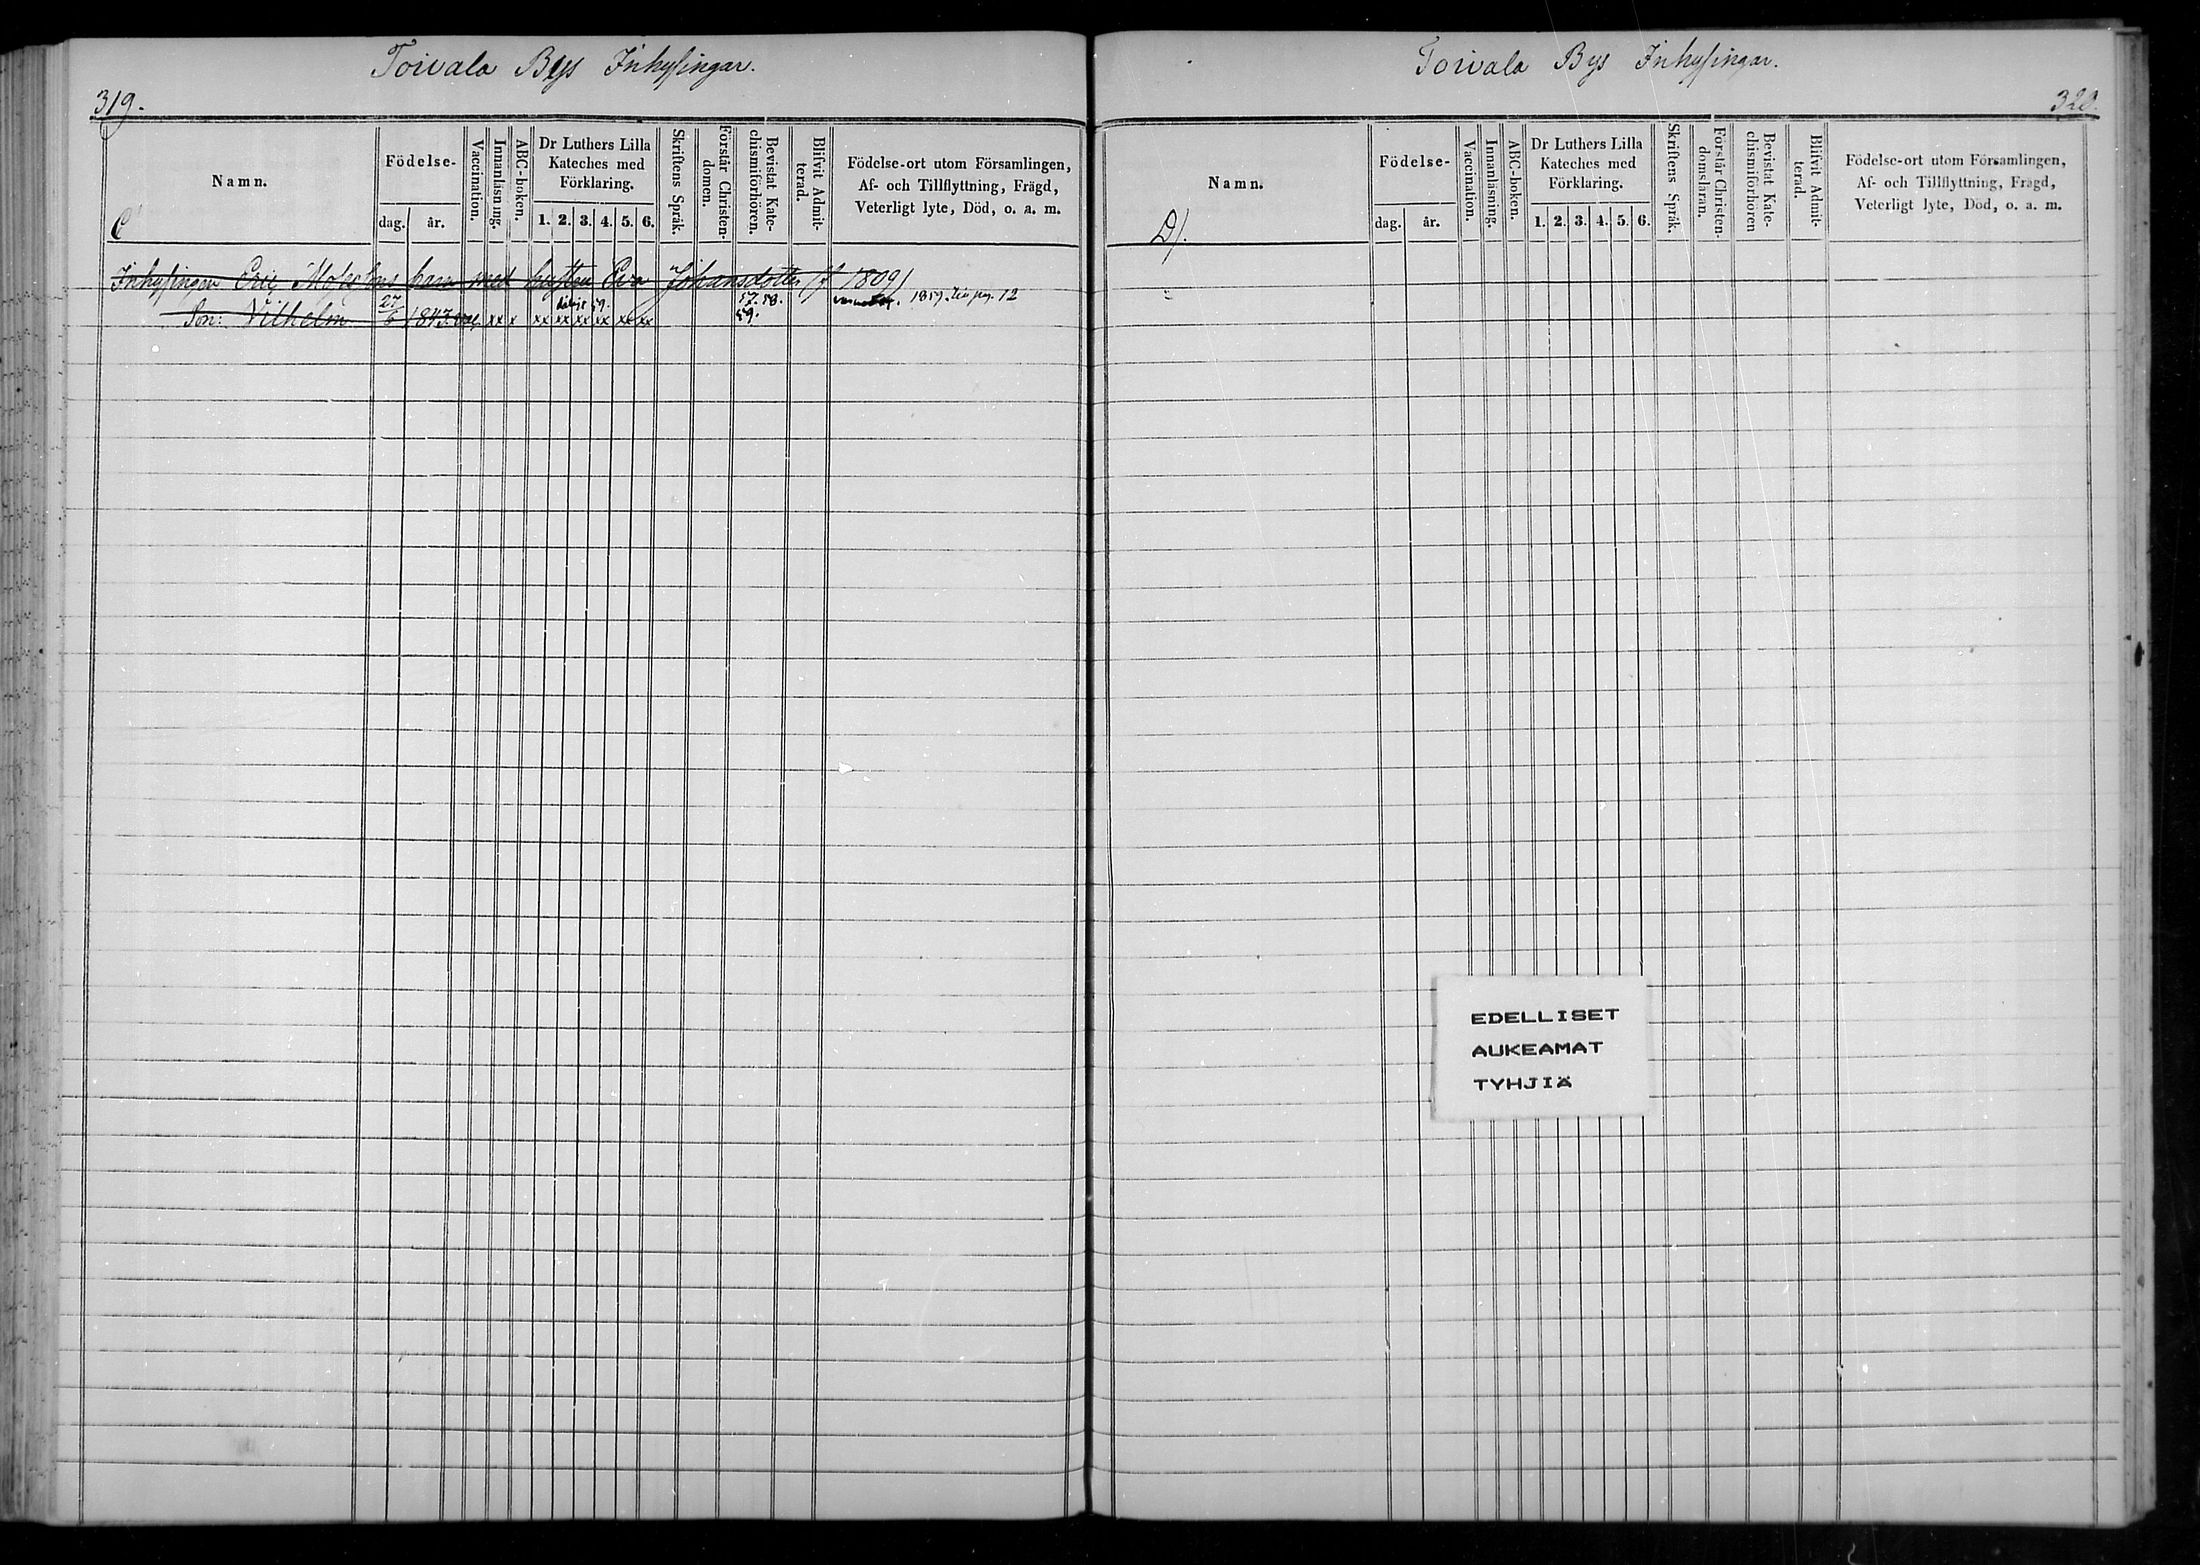 Toivala Bys Inhysingar.
319.
Namn.
C
Födelse-
dag. år.
Vaccination.
Innanläsning.
ABC-boken.
Dr Luthers Lilla
Kateches med
Förklaring.
1. 2. 3. 4. 5. 6.
Skriftens Språk.
Förstår Christen-
domen.
Bevistat Kate-
chismiförhören.
Blifvit Admit-
terad.
Födelse-ort utom Församlingen,
Af- och Tillflyttning, Frägd,
Veterligt lyte, Död, o. a. m.
Inhysingen Eric med Eva Johansdotter 1809)
57. 58. 1859. pag. 12
Son: Vilhelm 27/6 1843. xx x xx xx xx xx xx xx 59.
Toivala Bys Inhysingar.
320.
Namn.
D).
Födelse-
dag. år.
Vaccination.
Innanläsning.
ABC-boken.
Dr Luthers Lilla
Kateches med
Förklaring.
1. 2. 3. 4. 5. 6.
Skriftens Språk.
Förstår Christen-
domslaran.
Bevistat Kate-
chismiförhören
Blifvit Admit-
terad.
Födelse-ort utom Församlingen,
Af- och Tillflyttning, Frägd,
Veterligt lyte, Död, o. a. m.
EDELLISET
AUKEAMAT
TYHJIÄ